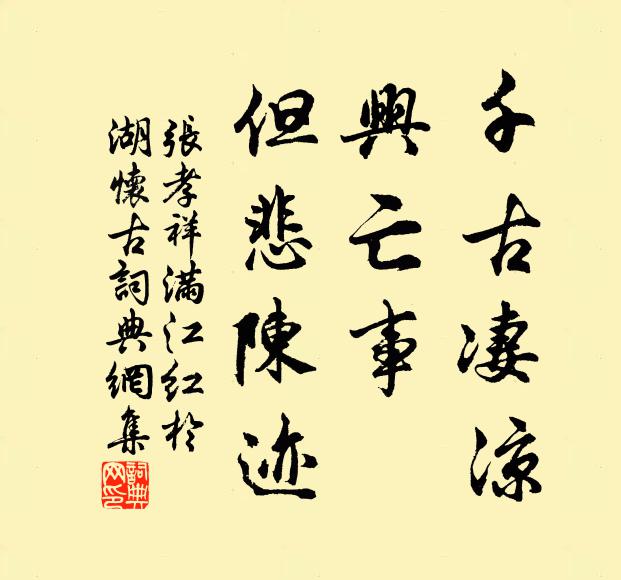 千古淒涼
興亡事
但悲陳迹
張孝祥滿江紅於
湖懷古詞典網集
詞典
网印